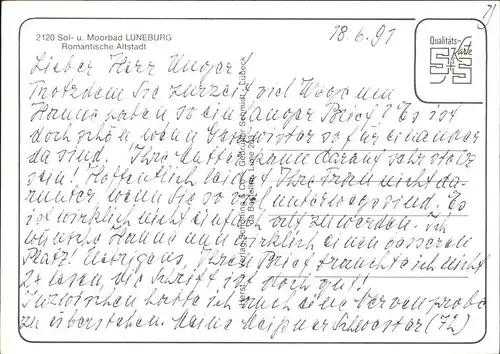 2120 Sol- u. Moorbad LÜNEBURG
Romantische Altstadt
18.6.91
Qualitäts-
Karte
Lieber Herr Unger!
Trotzdem Sie zurzeit viel Wege um
Hanne haben so ein langer Brief? Es ist
doch schön wenn Geschwister so für einander
da sind. Ihre Mutter kann darauf sehr stolz
sein! Hoffentlich leidet Ihre Frau nicht da-
runter, wenn Sie so viel unterwegs sind. Es
ist wirklich nicht einfach alt zu werden. Ich
wünsche Hanne nun wirklich einen besseren
Platz! Übrigens, Ihren Brief brauchte ich nicht
2x lesen, die Schrift ist doch gut!
Inzwischen hatte ich auch eine Nervenprobe
zu überstehen. Meine Meißner Schwester (72)